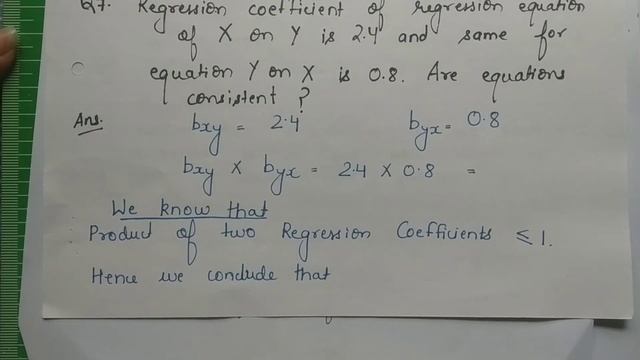 Q7. Regression coefficient of regression equation
of X on Y is 2.4 and same for
equation Y on X is 0.8. Are equations
consistent ?
Ans. bxy = 2.4 byx = 0.8
bxy × byx = 2.4 × 0.8 =
We know that
Product of two Regression Coefficients ≤ 1.
Hence we conclude that